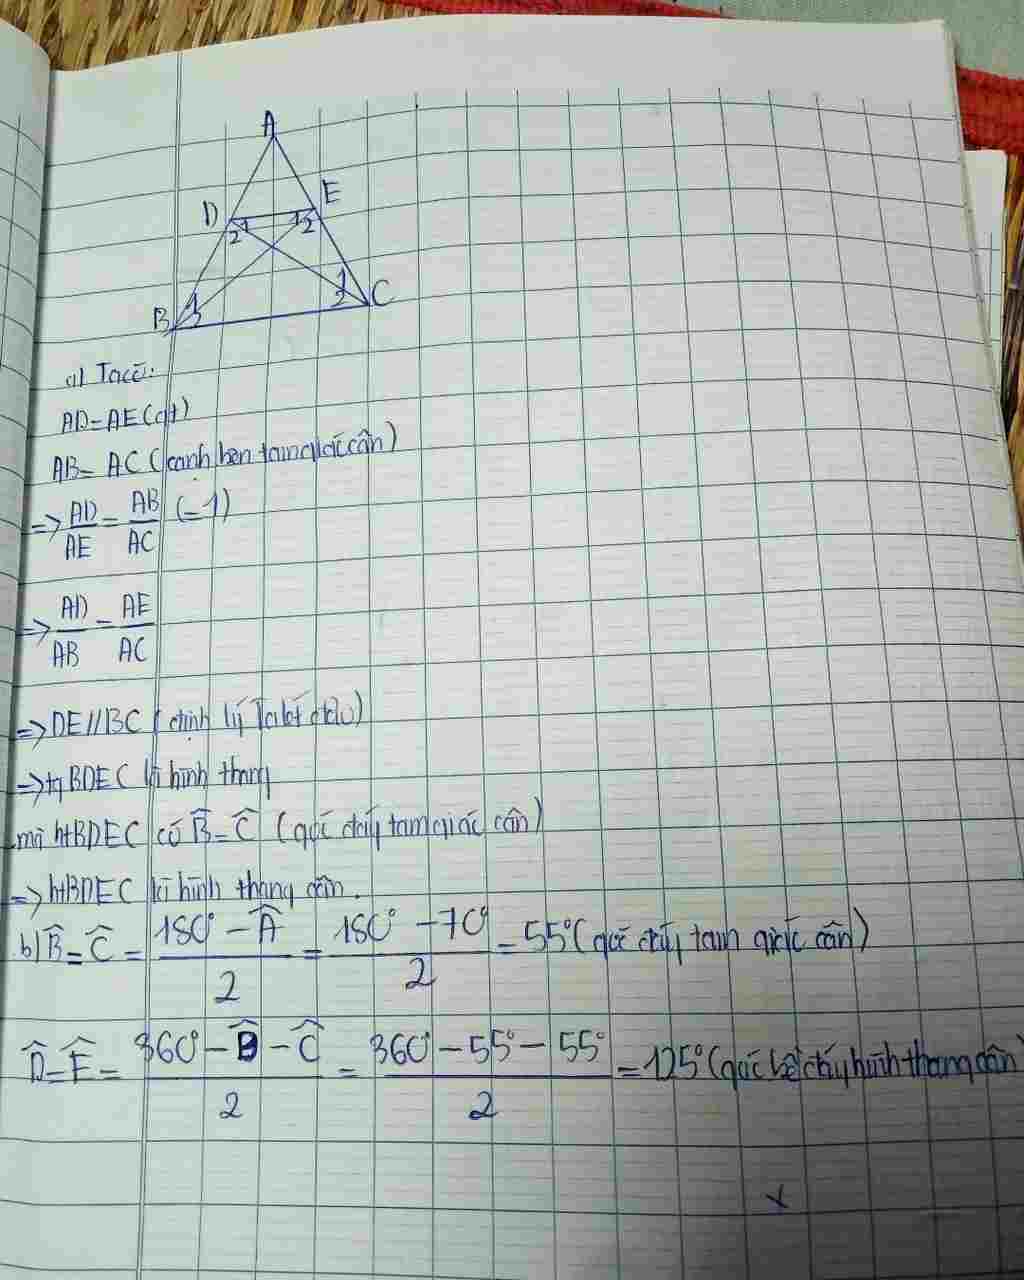 A
D
E
2 1
1 2
B
1
2
1
2
C
a) Ta có:
AD=AE(gt)
AB=AC (cạnh bên tam giác cân)
=> AD/AE = AB/AC (=1)
=> AD/AB = AE/AC
=> DE//BC (định lý Talét đảo)
=> tg BDEC là hình thang
mà htBDEC có B̂=Ĉ (góc đáy tam giác cân)
=> htBDEC là hình thang cân.
b) B̂=Ĉ = (180° - Â)/2 = (180° - 70°)/2 = 55° (góc đáy tam giác cân)
D̂=Ê = (360° - B̂ - Ĉ)/2 = (360° - 55° - 55°)/2 = 125° (góc kề đáy hình thang cân)